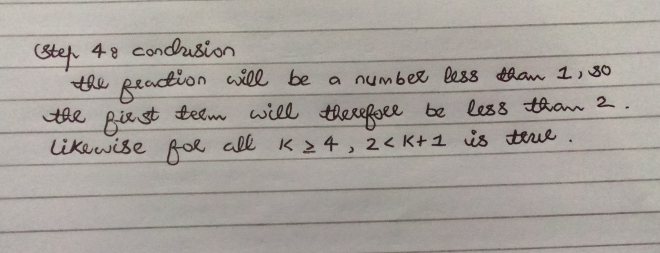 (Step 4: conclusion
the fraction will be a number less than 1, so
the first term will therefore be less than 2.
likewise for all K ≥ 4, 2 < K+1 is true.